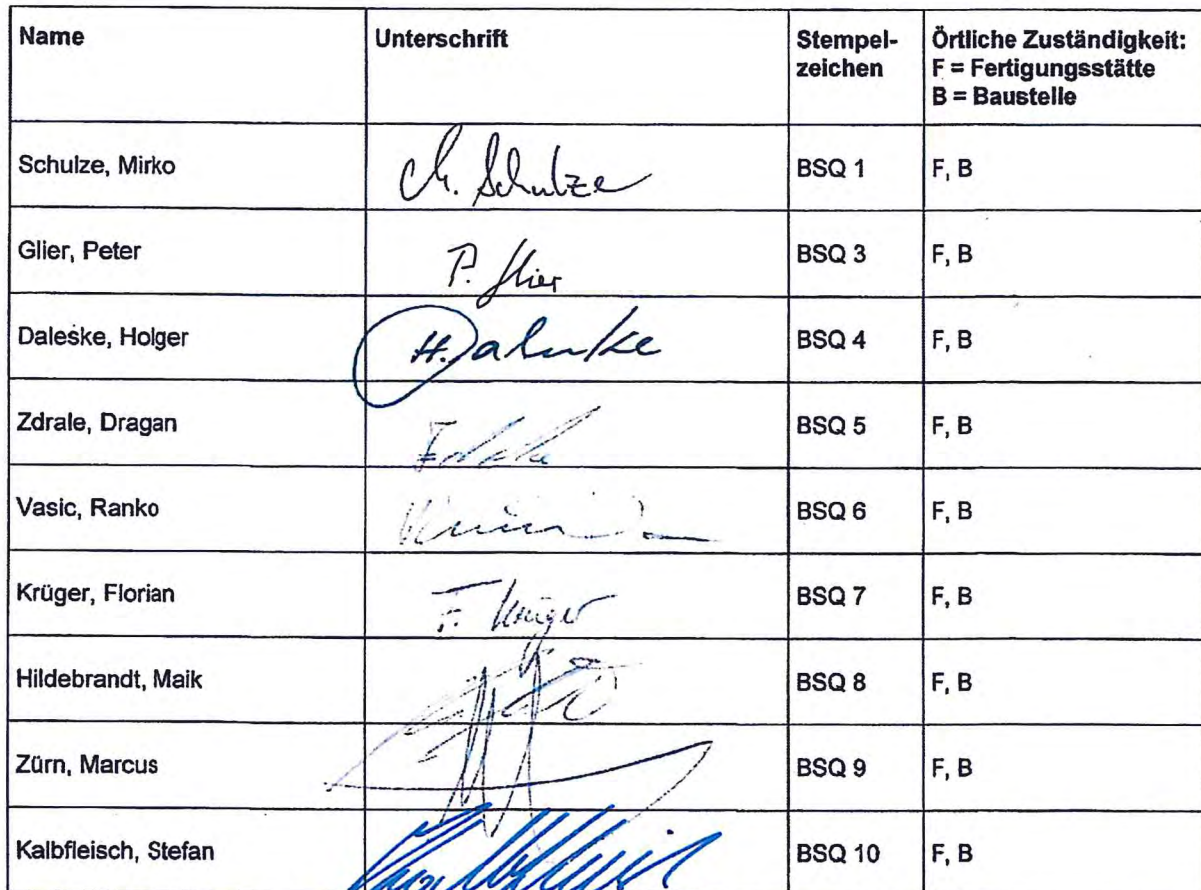 Name Unterschrift Stempel- Örtliche Zuständigkeit:
zeichen F = Fertigungsstätte
B = Baustelle
Schulze, Mirko M. Schulze BSQ 1 F, B
Glier, Peter P. Glier BSQ 3 F, B
Daleske, Holger H. BSQ 4 F, B
Zdrale, Dragan BSQ 5 F, B
Vasic, Ranko BSQ 6 F, B
Krüger, Florian F. Krüger BSQ 7 F, B
Hildebrandt, Maik BSQ 8 F, B
Zürn, Marcus BSQ 9 F, B
Kalbfleisch, Stefan BSQ 10 F, B